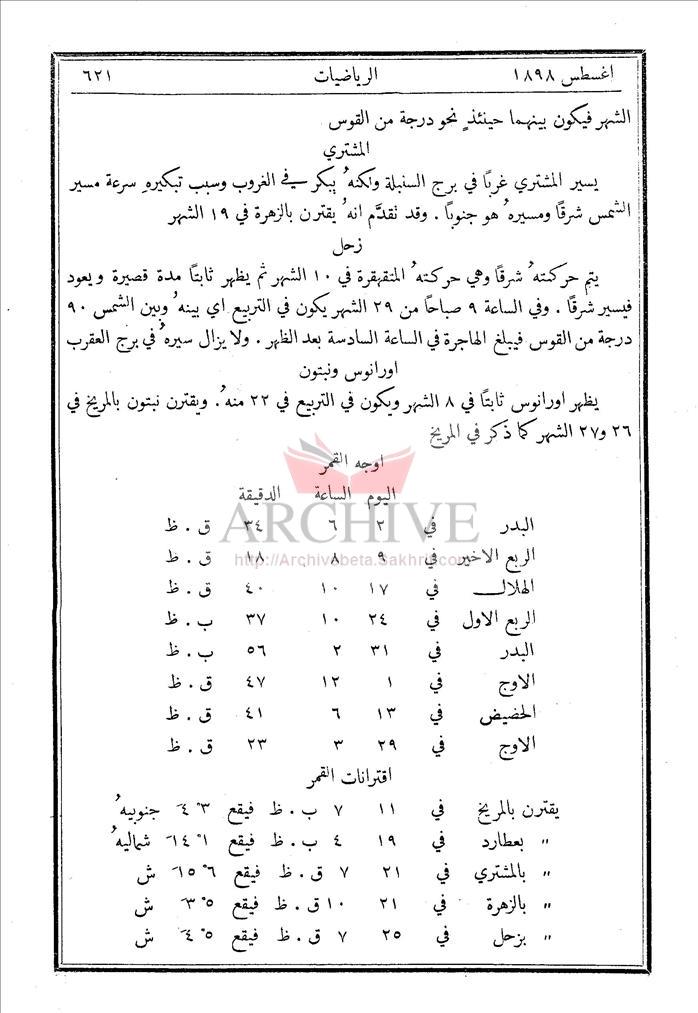 اغسطس ١٨٩٨ الرياضيات ٦٢١
الشهر فيكون بينهما حينئذٍ نحو درجة من القوس
المشتري
يسير المشتري غربًا في برج السنبلة ولكنهُ يبكر في الغروب وسبب تبكيرهِ سرعة مسير
الشمس شرقًا ومسيرهُ هو جنوبًا . وقد تقدَّم انهُ يقترن بالزهرة في ١٩ الشهر
زحل
يتم حركتهُ شرقًا وهي حركتهُ المتقهقرة في ١٠ الشهر ثم يظهر ثابتًا مدة قصيرة ويعود
فيسير شرقًا . وفي الساعة ٩ صباحًا من ٢٩ الشهر يكون في التربيع اي بينهُ وبين الشمس ٩٠
درجة من القوس فيبلغ الهاجرة في الساعة السادسة بعد الظهر . ولا يزال سيرهُ في برج العقرب
اورانوس ونبتون
يظهر اورانوس ثابتًا في ٨ الشهر ويكون في التربيع في ٢٢ منهُ . ويقترن نبتون بالمريخ في
٢٦ و٢٧ الشهر كما ذكر في المريخ
اوجه القمر
اليوم الساعة الدقيقة
البدر في ٢ ٦ ٣٤ ق . ظ
الربع الاخير في ٩ ٨ ١٨ ق . ظ
الهلال في ١٧ ١٠ ٤٠ ق . ظ
الربع الاول في ٢٤ ١٠ ٣٧ ب . ظ
البدر في ٣١ ٢ ٥٦ ب . ظ
الاوج في ١ ١٢ ٤٧ ق . ظ
الحضيض في ١٣ ٦ ٤١ ق . ظ
الاوج في ٢٩ ٣ ٢٣ ق . ظ
اقترانات القمر
يقترن بالمريخ في ١١ ٧ ب . ظ فيقع ٣° ٤َ جنوبيهُ
〃 بعطارد في ١٩ ٤ ب . ظ فيقع ١° ١٤َ شماليهُ
〃 بالمشتري في ٢١ ٧ ق . ظ فيقع ٦° ١٥َ ش
〃 بالزهرة في ٢١ ١٠ ق . ظ فيقع ٥° ٣َ ش
〃 بزحل في ٢٥ ٧ ق . ظ فيقع ٥° ٤َ ش
ARCHIVE
http://Archivebeta.Sakhrit.com